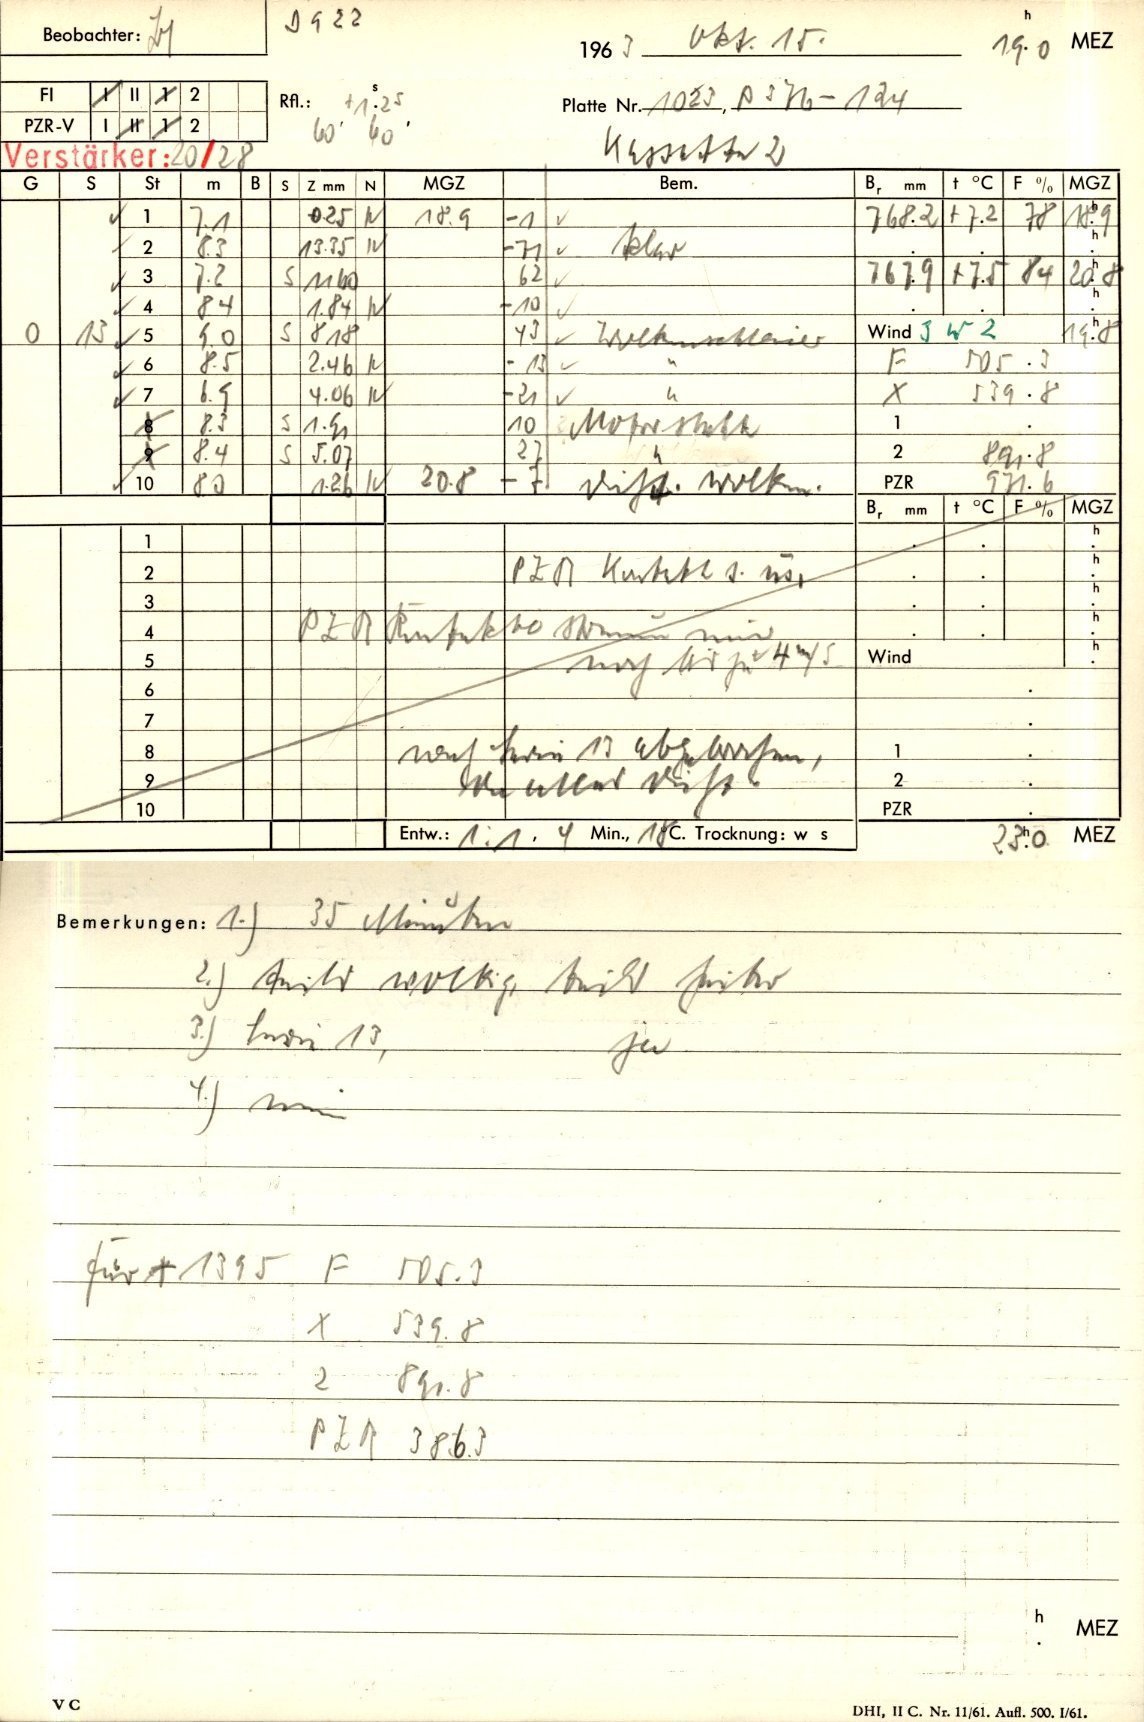 D 922
Beobachter:
1963 Okt. 15. 19.0 h MEZ
FI I II 1 2
PZR-V I II 1 2
Rfl.: +1.25 s
60' 60'
Platte Nr. 1023, P 376-124
Kassette 2
Verstärker: 20/28
G S St m B S Z mm N MGZ Bem. Br mm t °C F % MGZ
1 7.1 0.25 N 18.9 -1 768.2 +7.2 78 18.9 h
2 8.3 13.35 N -71 klar h
3 7.2 S 11.60 62 767.9 +7.5 84 20.8 h
4 8.4 1.84 N -10 h
0 13 5 9.0 S 8.18 43 Wolkenschleier Wind SW 2 19.8 h
6 8.5 2.46 N -13 " F 505.3
7 6.9 4.06 N -21 " X 539.8
8 8.3 S 1.91 10 1
9 8.4 S 5.07 27 " 2 891.8
10 8.0 1.26 N 20.8 -7 dicht. Wolken. PZR 971.6
Br mm t °C F % MGZ
1 h
2 PZR h
3 h
4 PZR h
5 noch bis zu 4 m/s Wind h
6
7
8 nach Serie 13 abgebrochen, 1
9 da alles dicht. 2
10 PZR
Entw.: 1:1, 4 Min., 18 C. Trocknung: w s 23.0 h MEZ
Bemerkungen: 1.) 35 Minuten
2.) teils wolkig, teils heiter
3.) Serie 13, ja
4.) nein
für * 1395 F 505.3
X 539.8
2 891.8
PZR 386.3
h MEZ
V C
DHI, II C. Nr. 11/61. Aufl. 500. I/61.